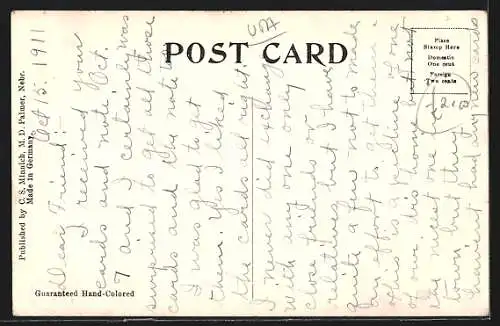 POST CARD
Place
Stamp Here
Domestic
One cent
Foreign
Two cents
Published by C. S. Minnich, M. D. Palmer, Nebr.
Made in Germany.
Guaranteed Hand-Colored
Oct 15. 1911
Dear Friend:
I received your
cards and note Oct.
7 and I certainly was
surprised to get all those
cards and the note too
I was glad to get
them. Yes I liked
the cards all right.
I never did exchange
with any one only
close friends or
relatives but I have
quite a few not to made
an effort to get them.
This is a picture of one
of our homes but not
the nicest one in
town but they
haven't had any new ones